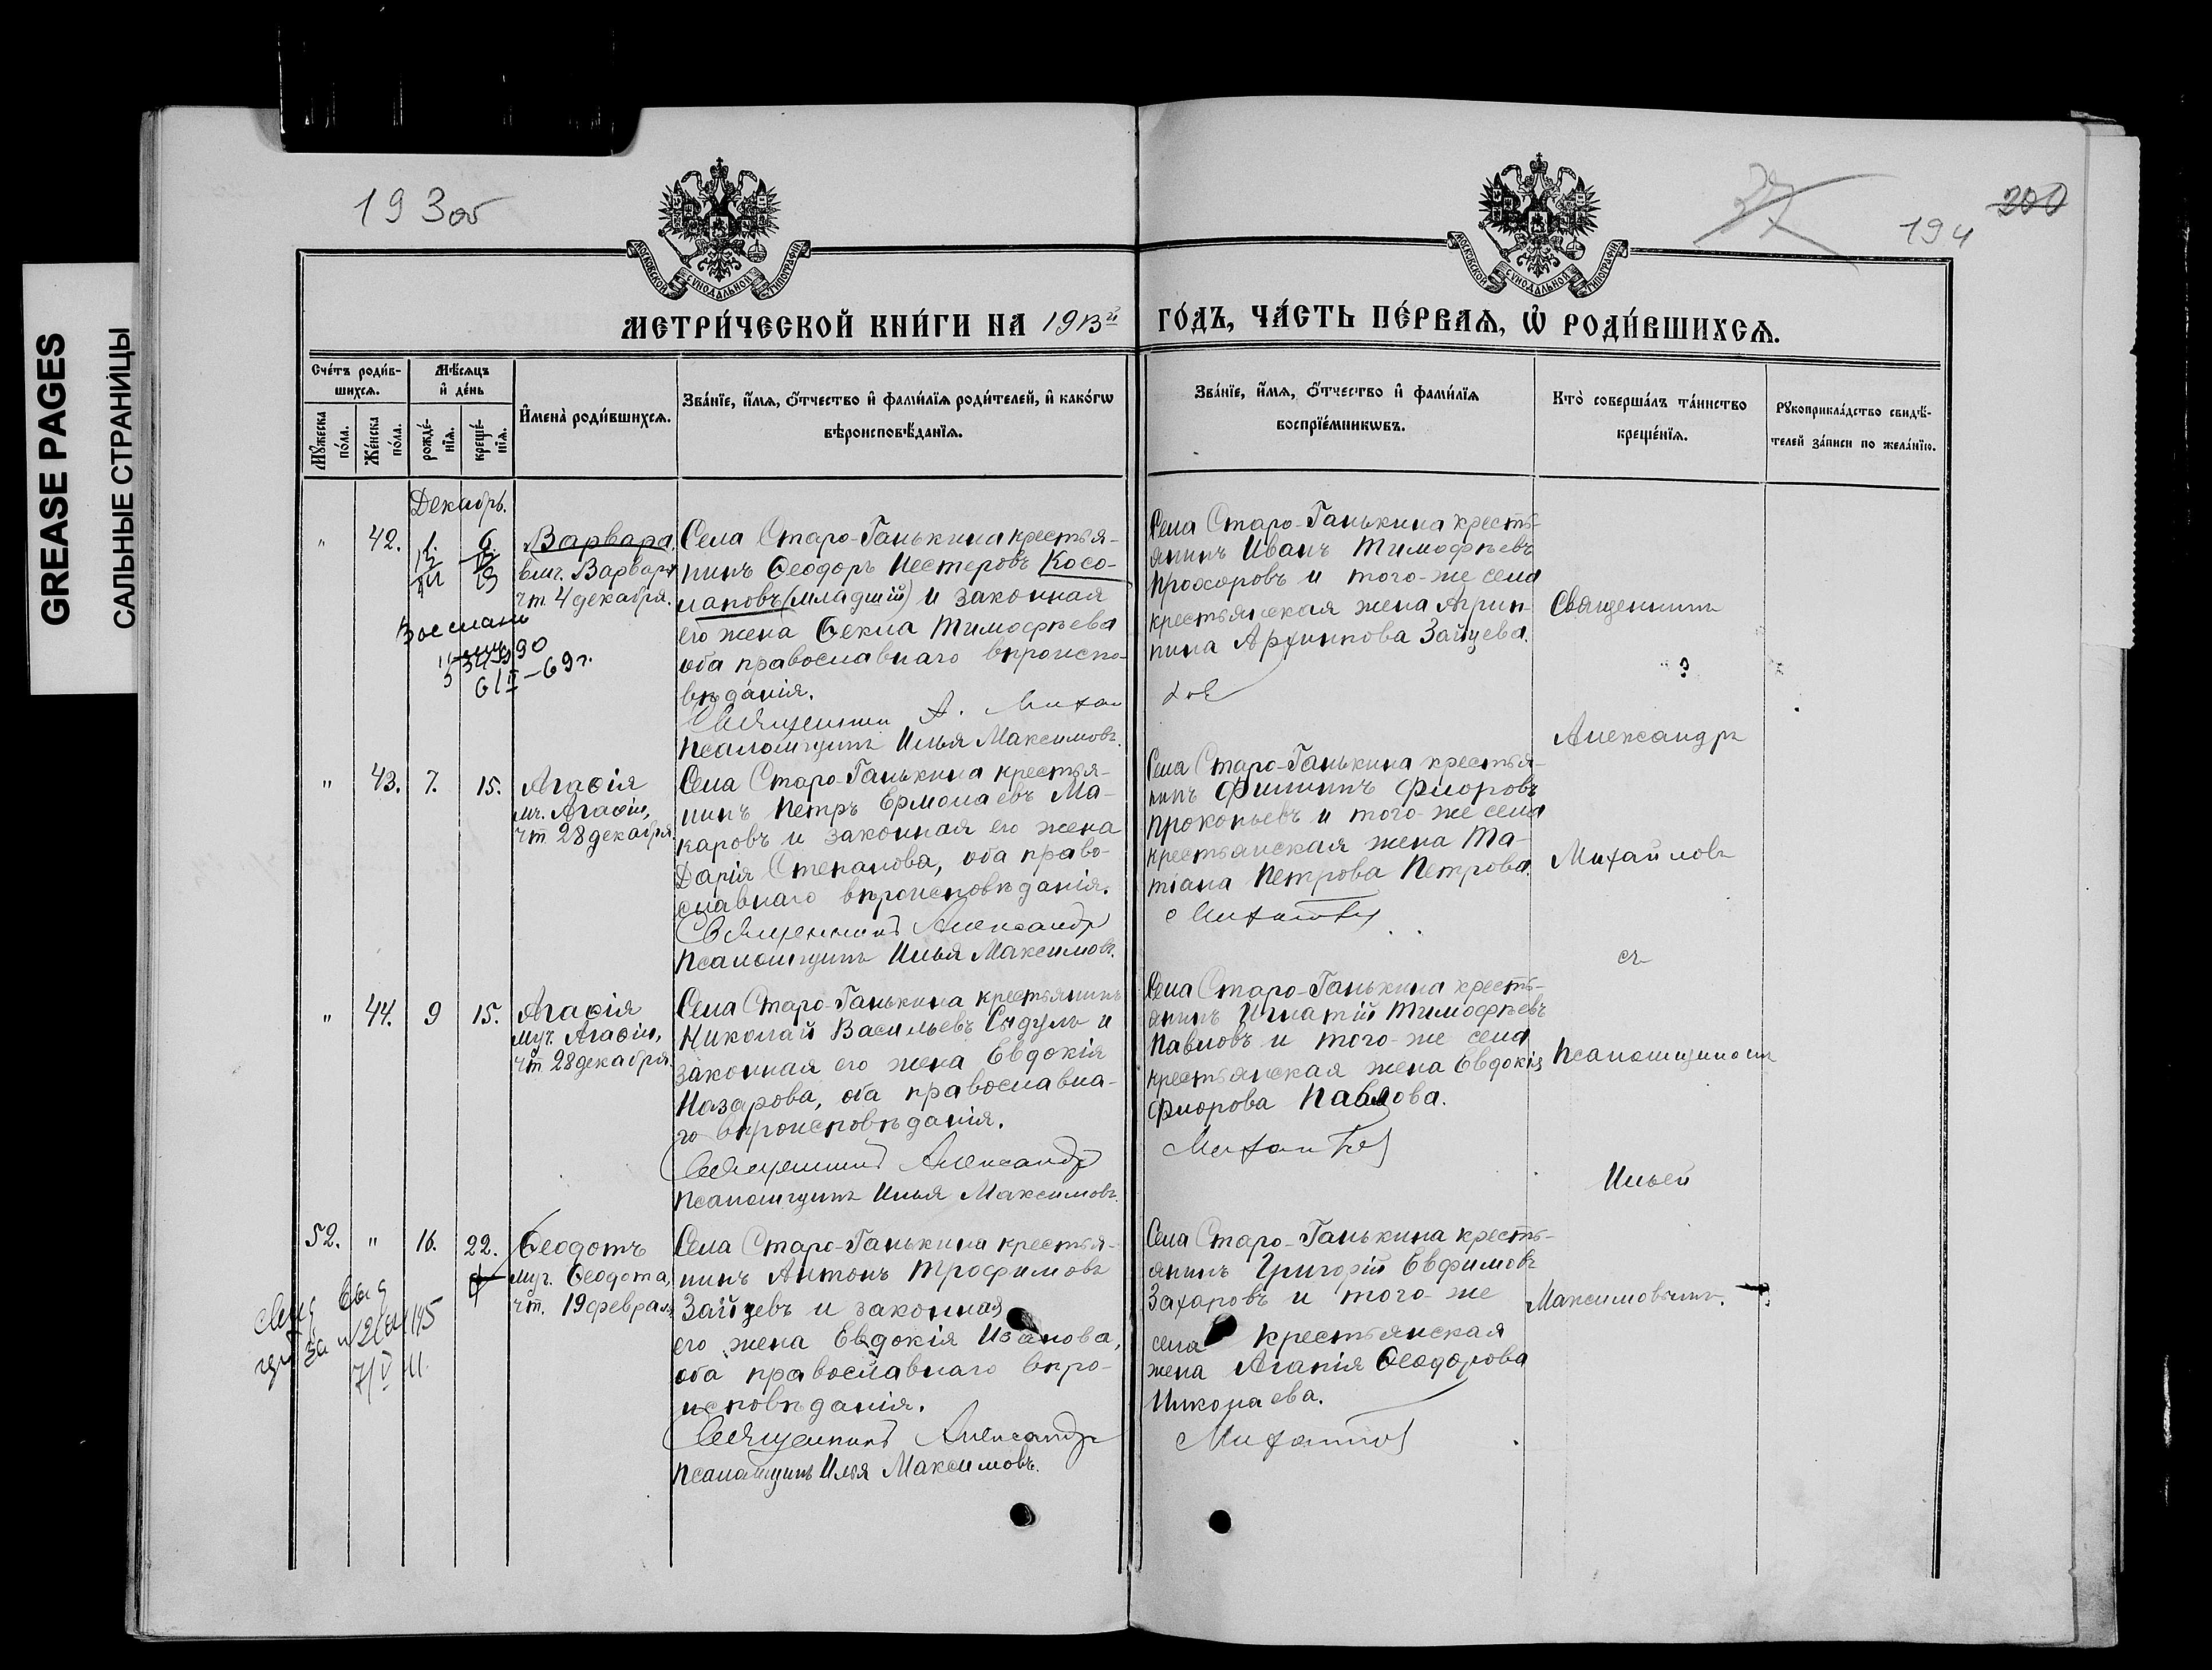 GREASE PAGES
САЛЬНЫЕ СТРАНИЦЫ
193об
194
200
МОСКОВСКОЙ СУНОДАЛЬНОЙ ТИПОГРАФІИ
МОСКОВСКОЙ СУНОДАЛЬНОЙ ТИПОГРАФІИ
МЕТРИ́ЧЕСКОЙ КНИ́ГИ НА 1913й ГО́ДЪ, ЧА́СТЬ ПЕ́РВАѦ, Ѡ҆ РОДИ́ВШИХСѦ.
Сче́тъ роди́в-
шихсѧ.
Мꙋ́жеска
по́ла.
Же́нска
по́ла.
Мѣ́сѧцъ
и҆ де́нь
рожде́-
нїѧ.
креще́-
нїѧ.
И҆мена̀ роди́вшихсѧ.
Зва́нїе, и҆́мѧ, ѻ҆́тчество и҆ фами́лїѧ роди́телей, и҆ како́гѡ
вѣроисповѣ́данїѧ.
Зва́нїе, и҆́мѧ, ѻ҆́тчество и҆ фами́лїѧ
воспрїе́мникѡвъ.
Кто̀ соверша́лъ та́инство
креще́нїѧ.
Рꙋкоприкла́дство свидѣ́-
телей за́писи по жела́нїю.
Декабрь.
" 42. 1. 6
Варвара.
вмч. Варвары
чт. 4 декабря.
Села Старо-Ганькина крестья-
нинъ Ѳеодоръ Нестеровъ Косо-
лаповъ (младшій) и законная
его жена Ѳекла Тимофѣева
оба православнаго вѣроиспо-
вѣданія.
Священник А. Михай
Псаломщикъ Илья Максимовъ.
Села Старо-Ганькина кресть-
янинъ Иванъ Тимофѣевъ
Прохоровъ и того-же села
крестьянская жена Агрип-
пина Архипова Зайцева.
6/II-69г.
" 43. 7. 15.
Агаѳія
мч. Агаѳіи,
чт. 28 декабря.
Села Старо-Ганькина крестья-
нинъ Петръ Ермолаевъ Ма-
каровъ и законная его жена
Дарія Степанова, оба право-
славнаго вѣроисповѣданія.
Священникъ Александр
Псаломщикъ Илья Максимовъ.
Села Старо-Ганькина крестья-
нинъ Филиппъ Флоровъ
Прокопьевъ и того-же села
крестьянская жена Та-
тіана Петрова Петрова.
Михайловъ
" 44. 9 15.
Агаѳія
муч. Агаѳіи,
чт. 28 декабря.
Села Старо-Ганькина крестьянинъ
Николай Васильевъ Сидулъ и
законная его жена Евдокія
Назарова, оба православна-
го вѣроисповѣданія.
Священникъ Александр
Псаломщикъ Илья Максимовъ.
Села Старо-Ганькина кресть-
янинъ Игнатій Тимофѣевъ
Павловъ и того-же села
крестьянская жена Евдокія
Флорова Павлова.
Михайлов
52. " 16. 22.
Ѳеодотъ
муч. Ѳеодота,
чт. 19 февраля
Села Старо-Ганькина крестья-
нинъ Антонъ Трофимовъ
Зайцевъ и законная
его жена Евдокія Иванова,
оба православнаго вѣро-
исповѣданія.
Священникъ Александръ
Псаломщикъ Илья Максимовъ.
Села Старо-Ганькина кресть-
янинъ Григорій Евфимовъ
Захаровъ и того-же
села крестьянская
жена Агапія Ѳеодорова
Николаева.
Михайлов
Священникъ
Александръ
Михайловъ
съ
псаломщикомъ
Ильей
Максимовымъ.